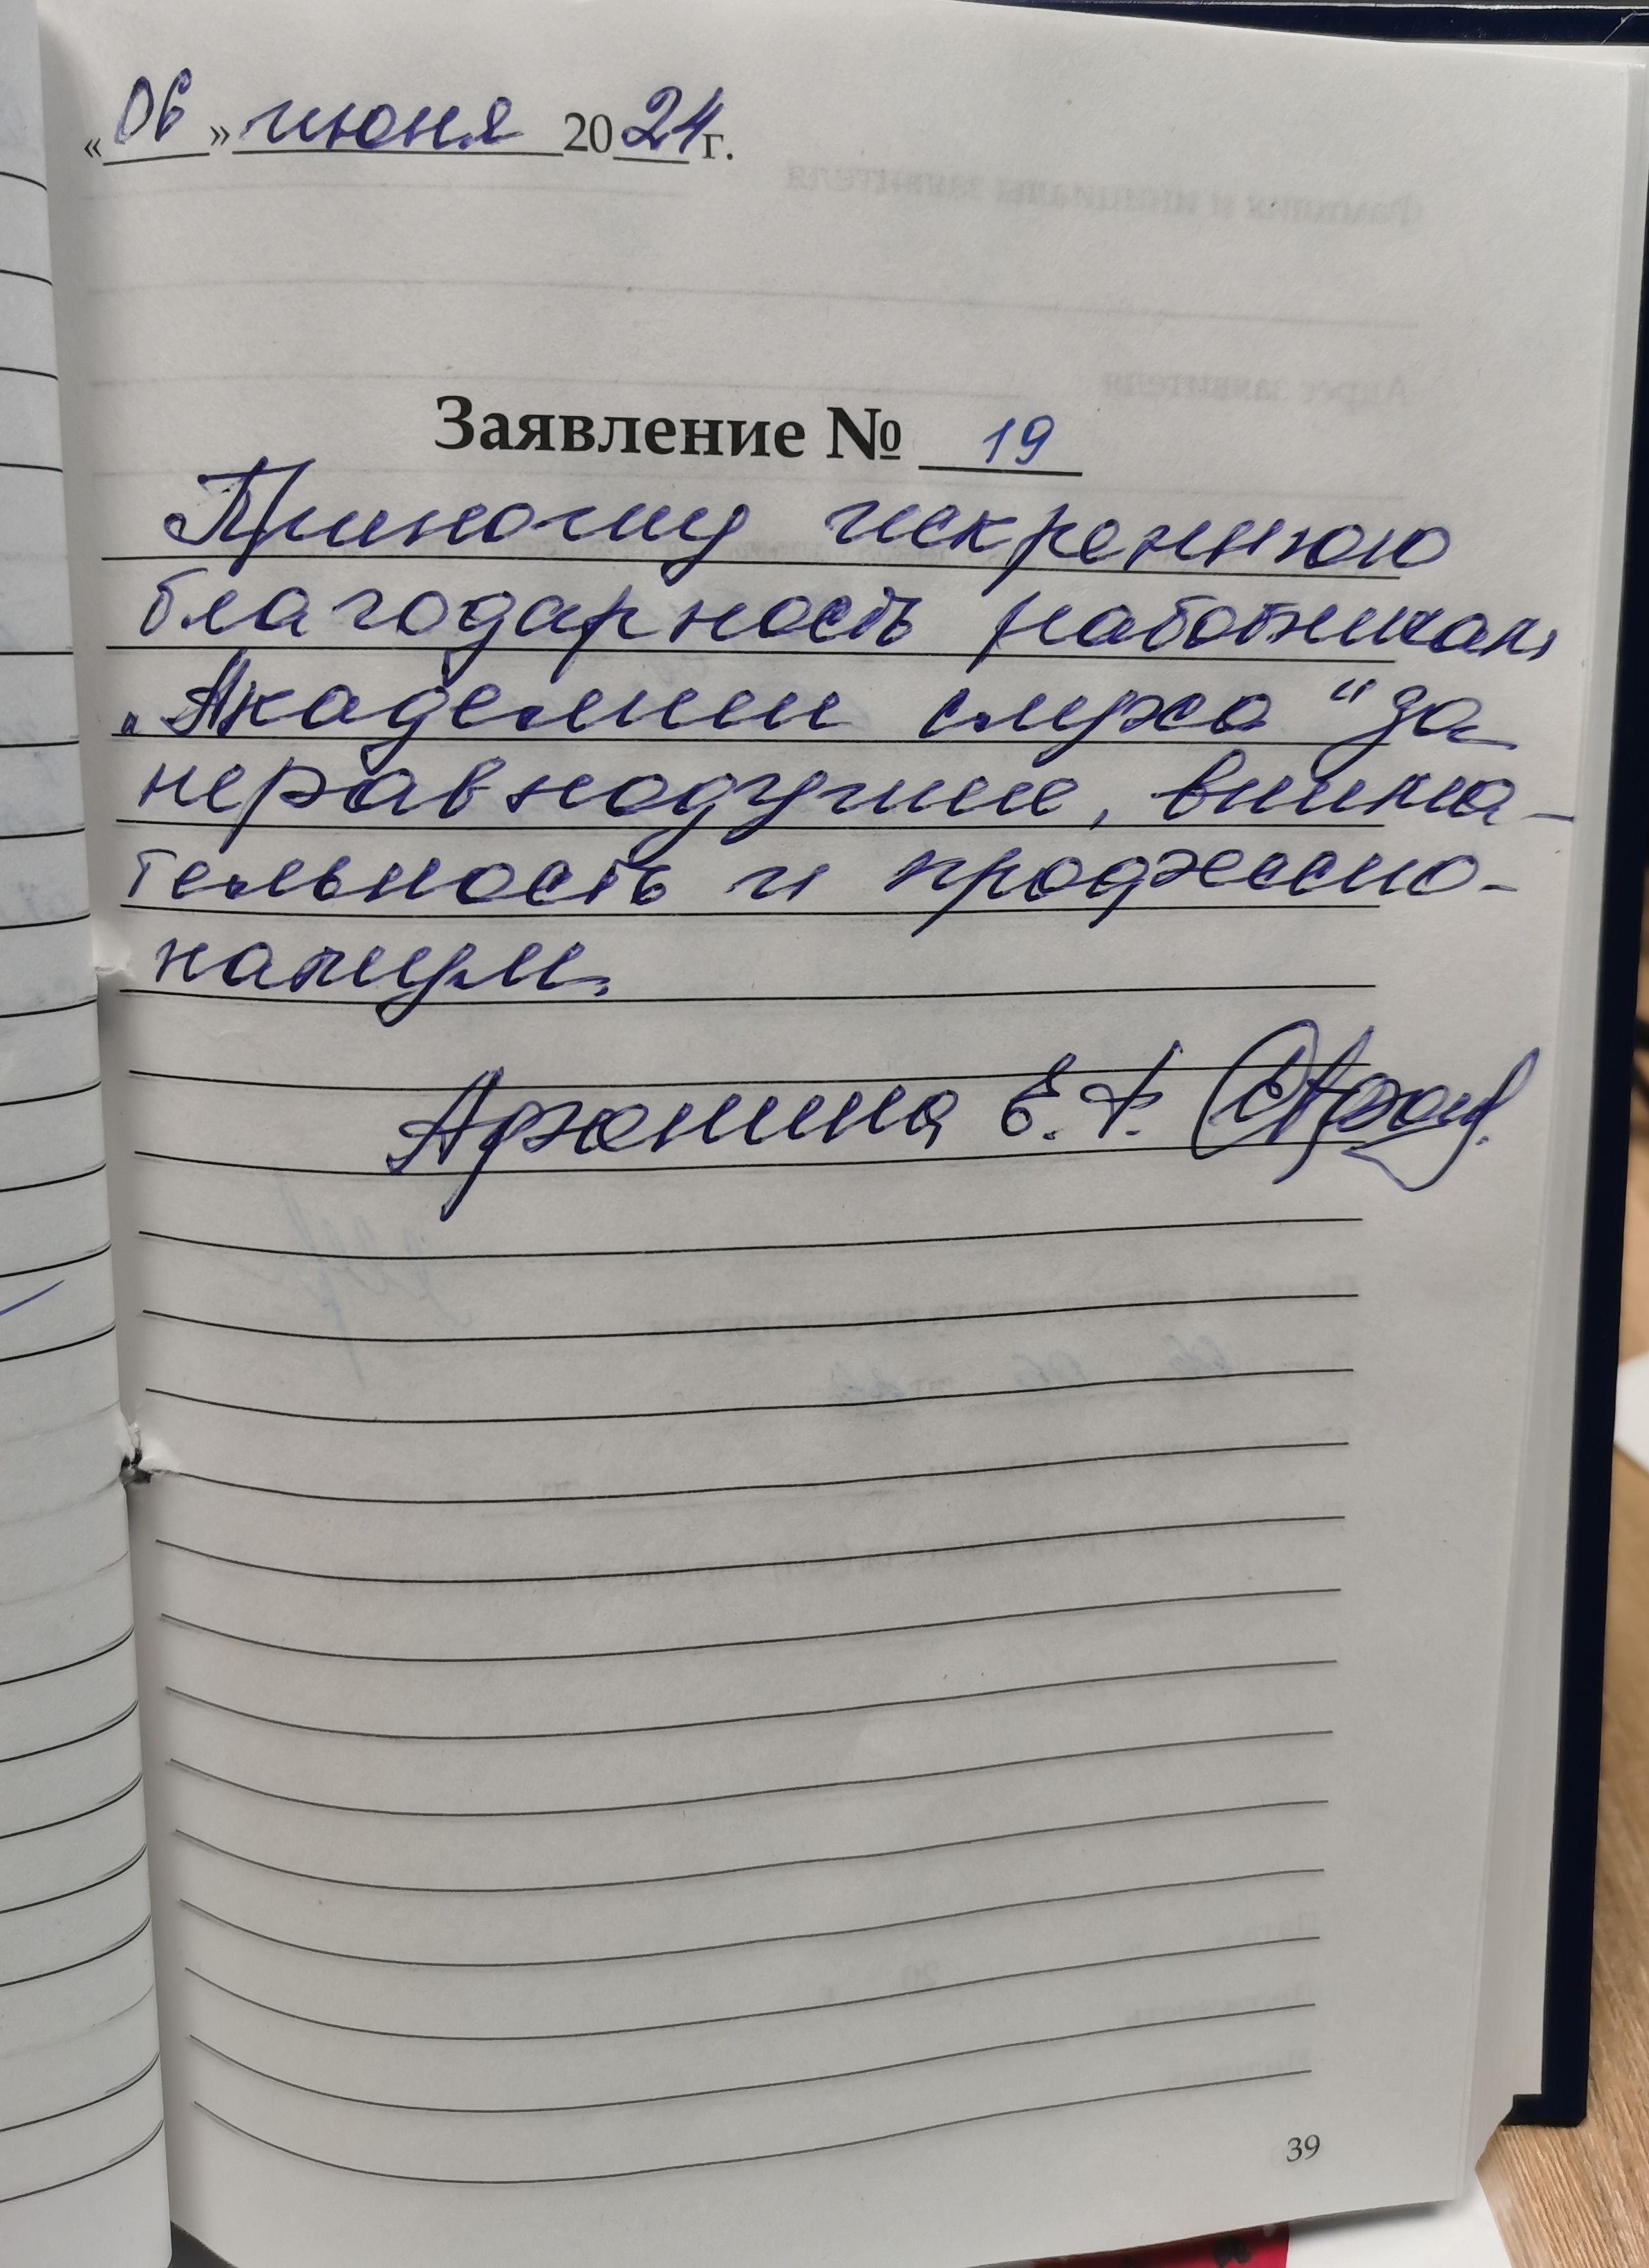 «06» июня 2024 г.
Заявление № 19
Приношу искреннюю
благодарность работникам
„Академии слуха“ за
неравнодушие, внима-
тельность и профессио-
нализм.
Е. Ф.
39